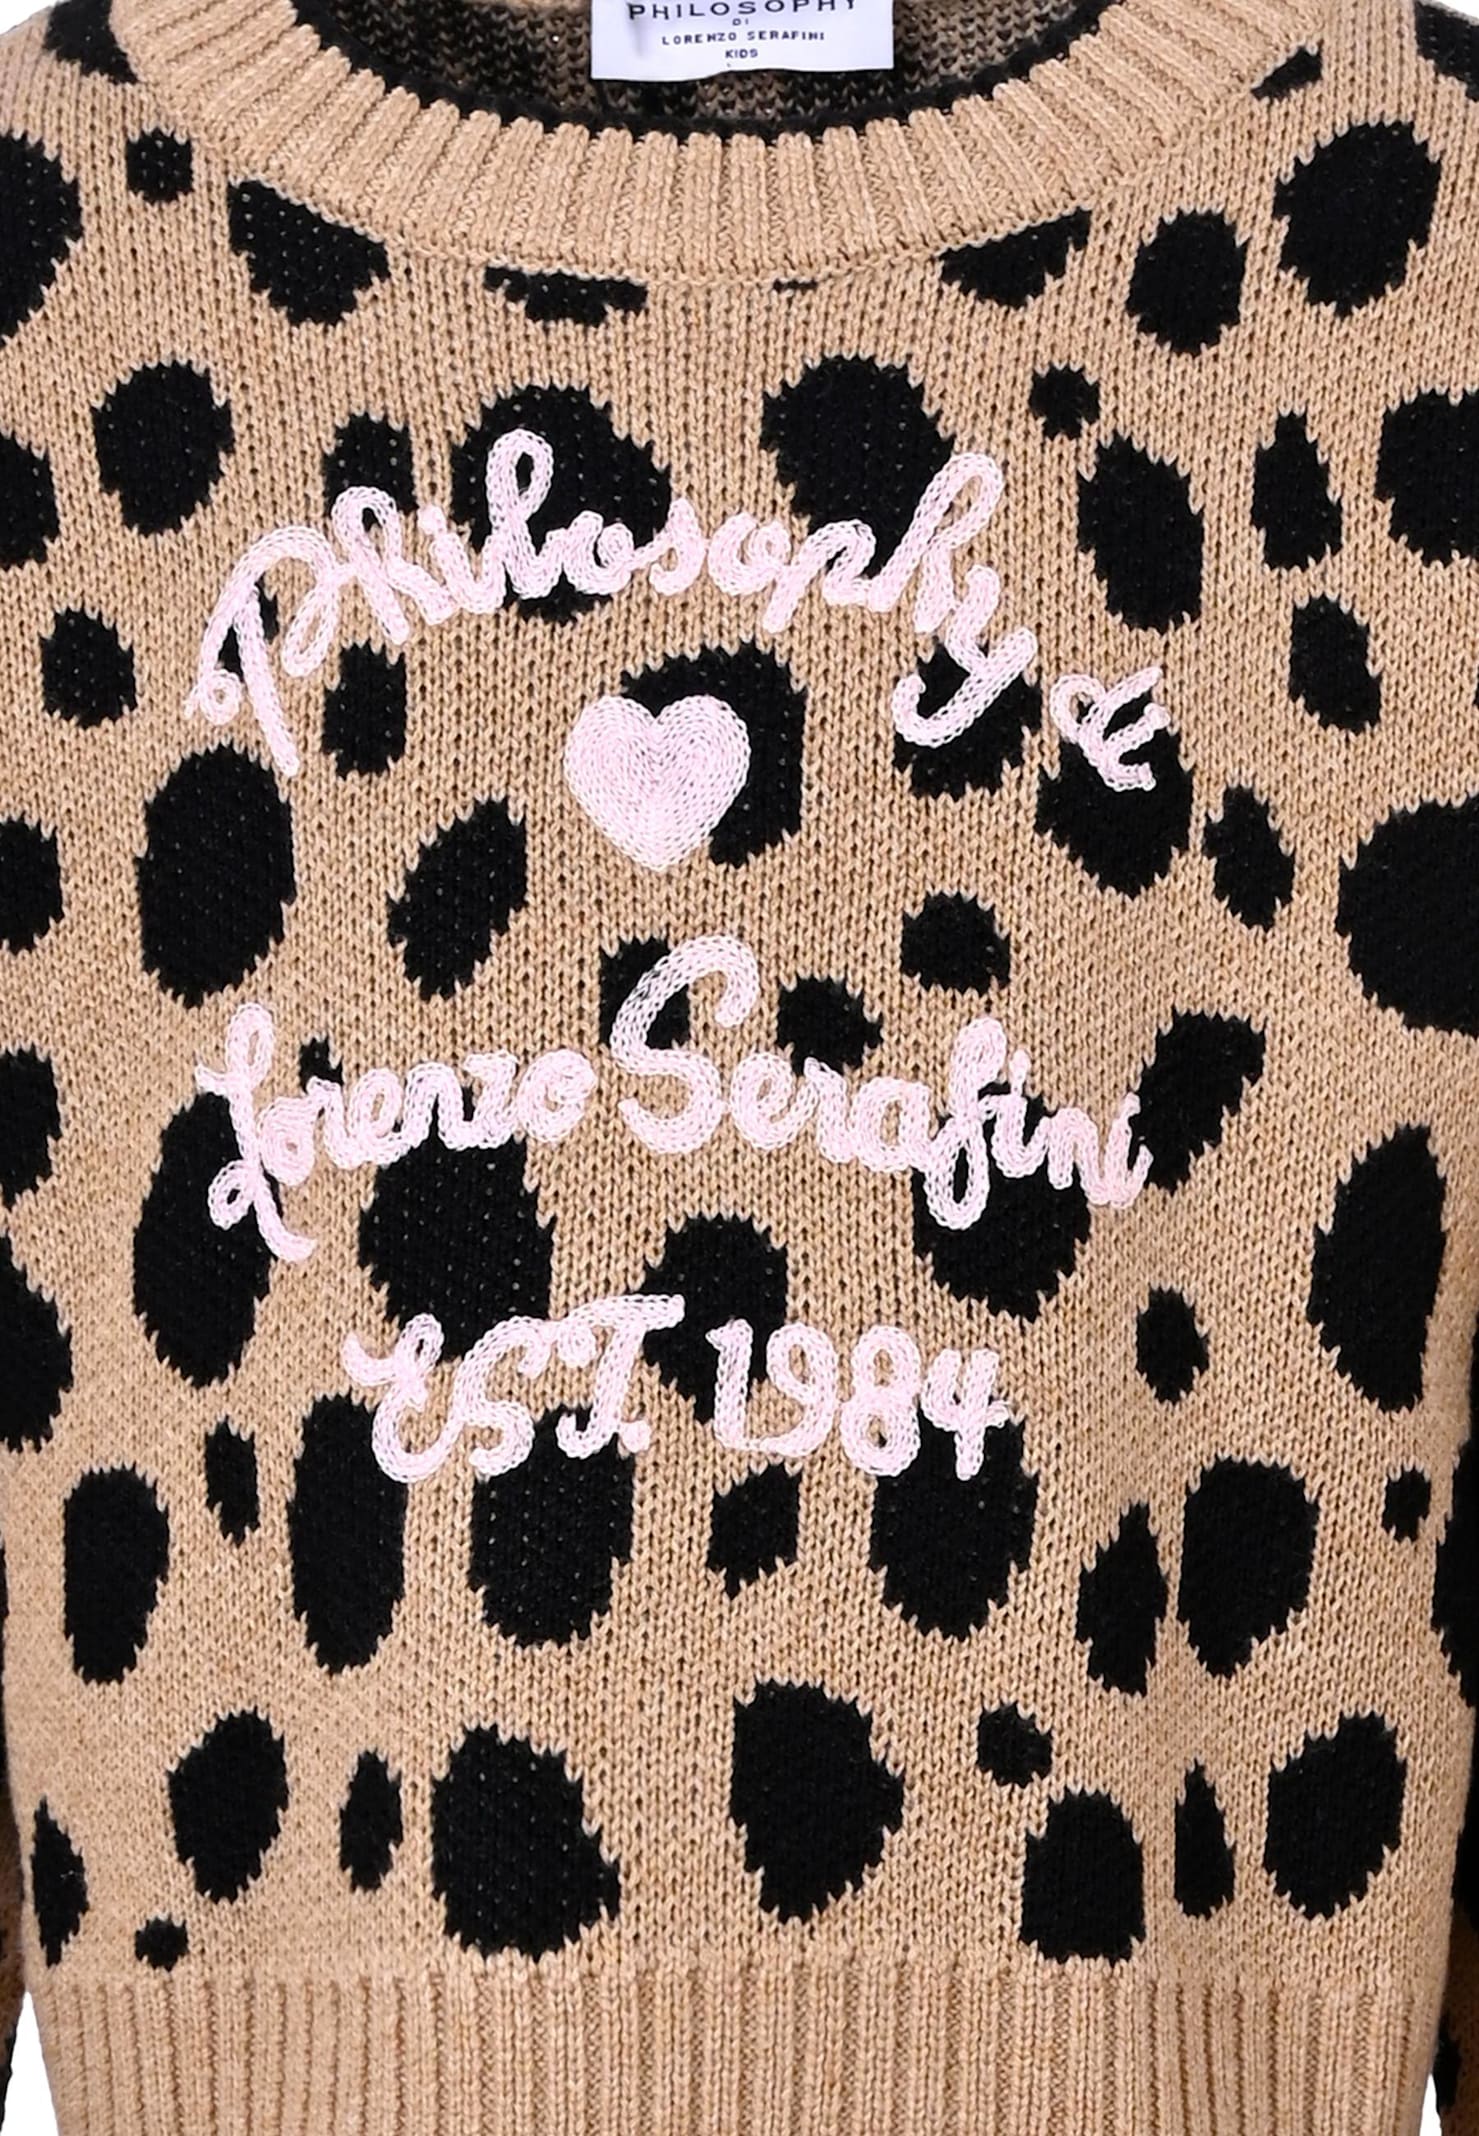 PHILOSOPHY
DI
LORENZO SERAFINI
KIDS
Philosophy
Lorenzo Serafini
EST. 1984